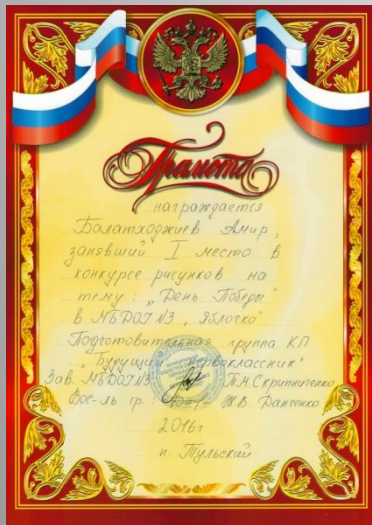 Грамота
награждается
Балатходжиев Амир,
занявший I место в
конкурсе рисунков на
тему: „День Победы"
в МБДОУ №3 „Яблочко"
Подготовительная группа КП
„Будущий первоклассник"
Зав. МБДОУ №3 П.Н. Скрипниченко
Вос-ль гр. Ж.В.
2016г
п. Тульский